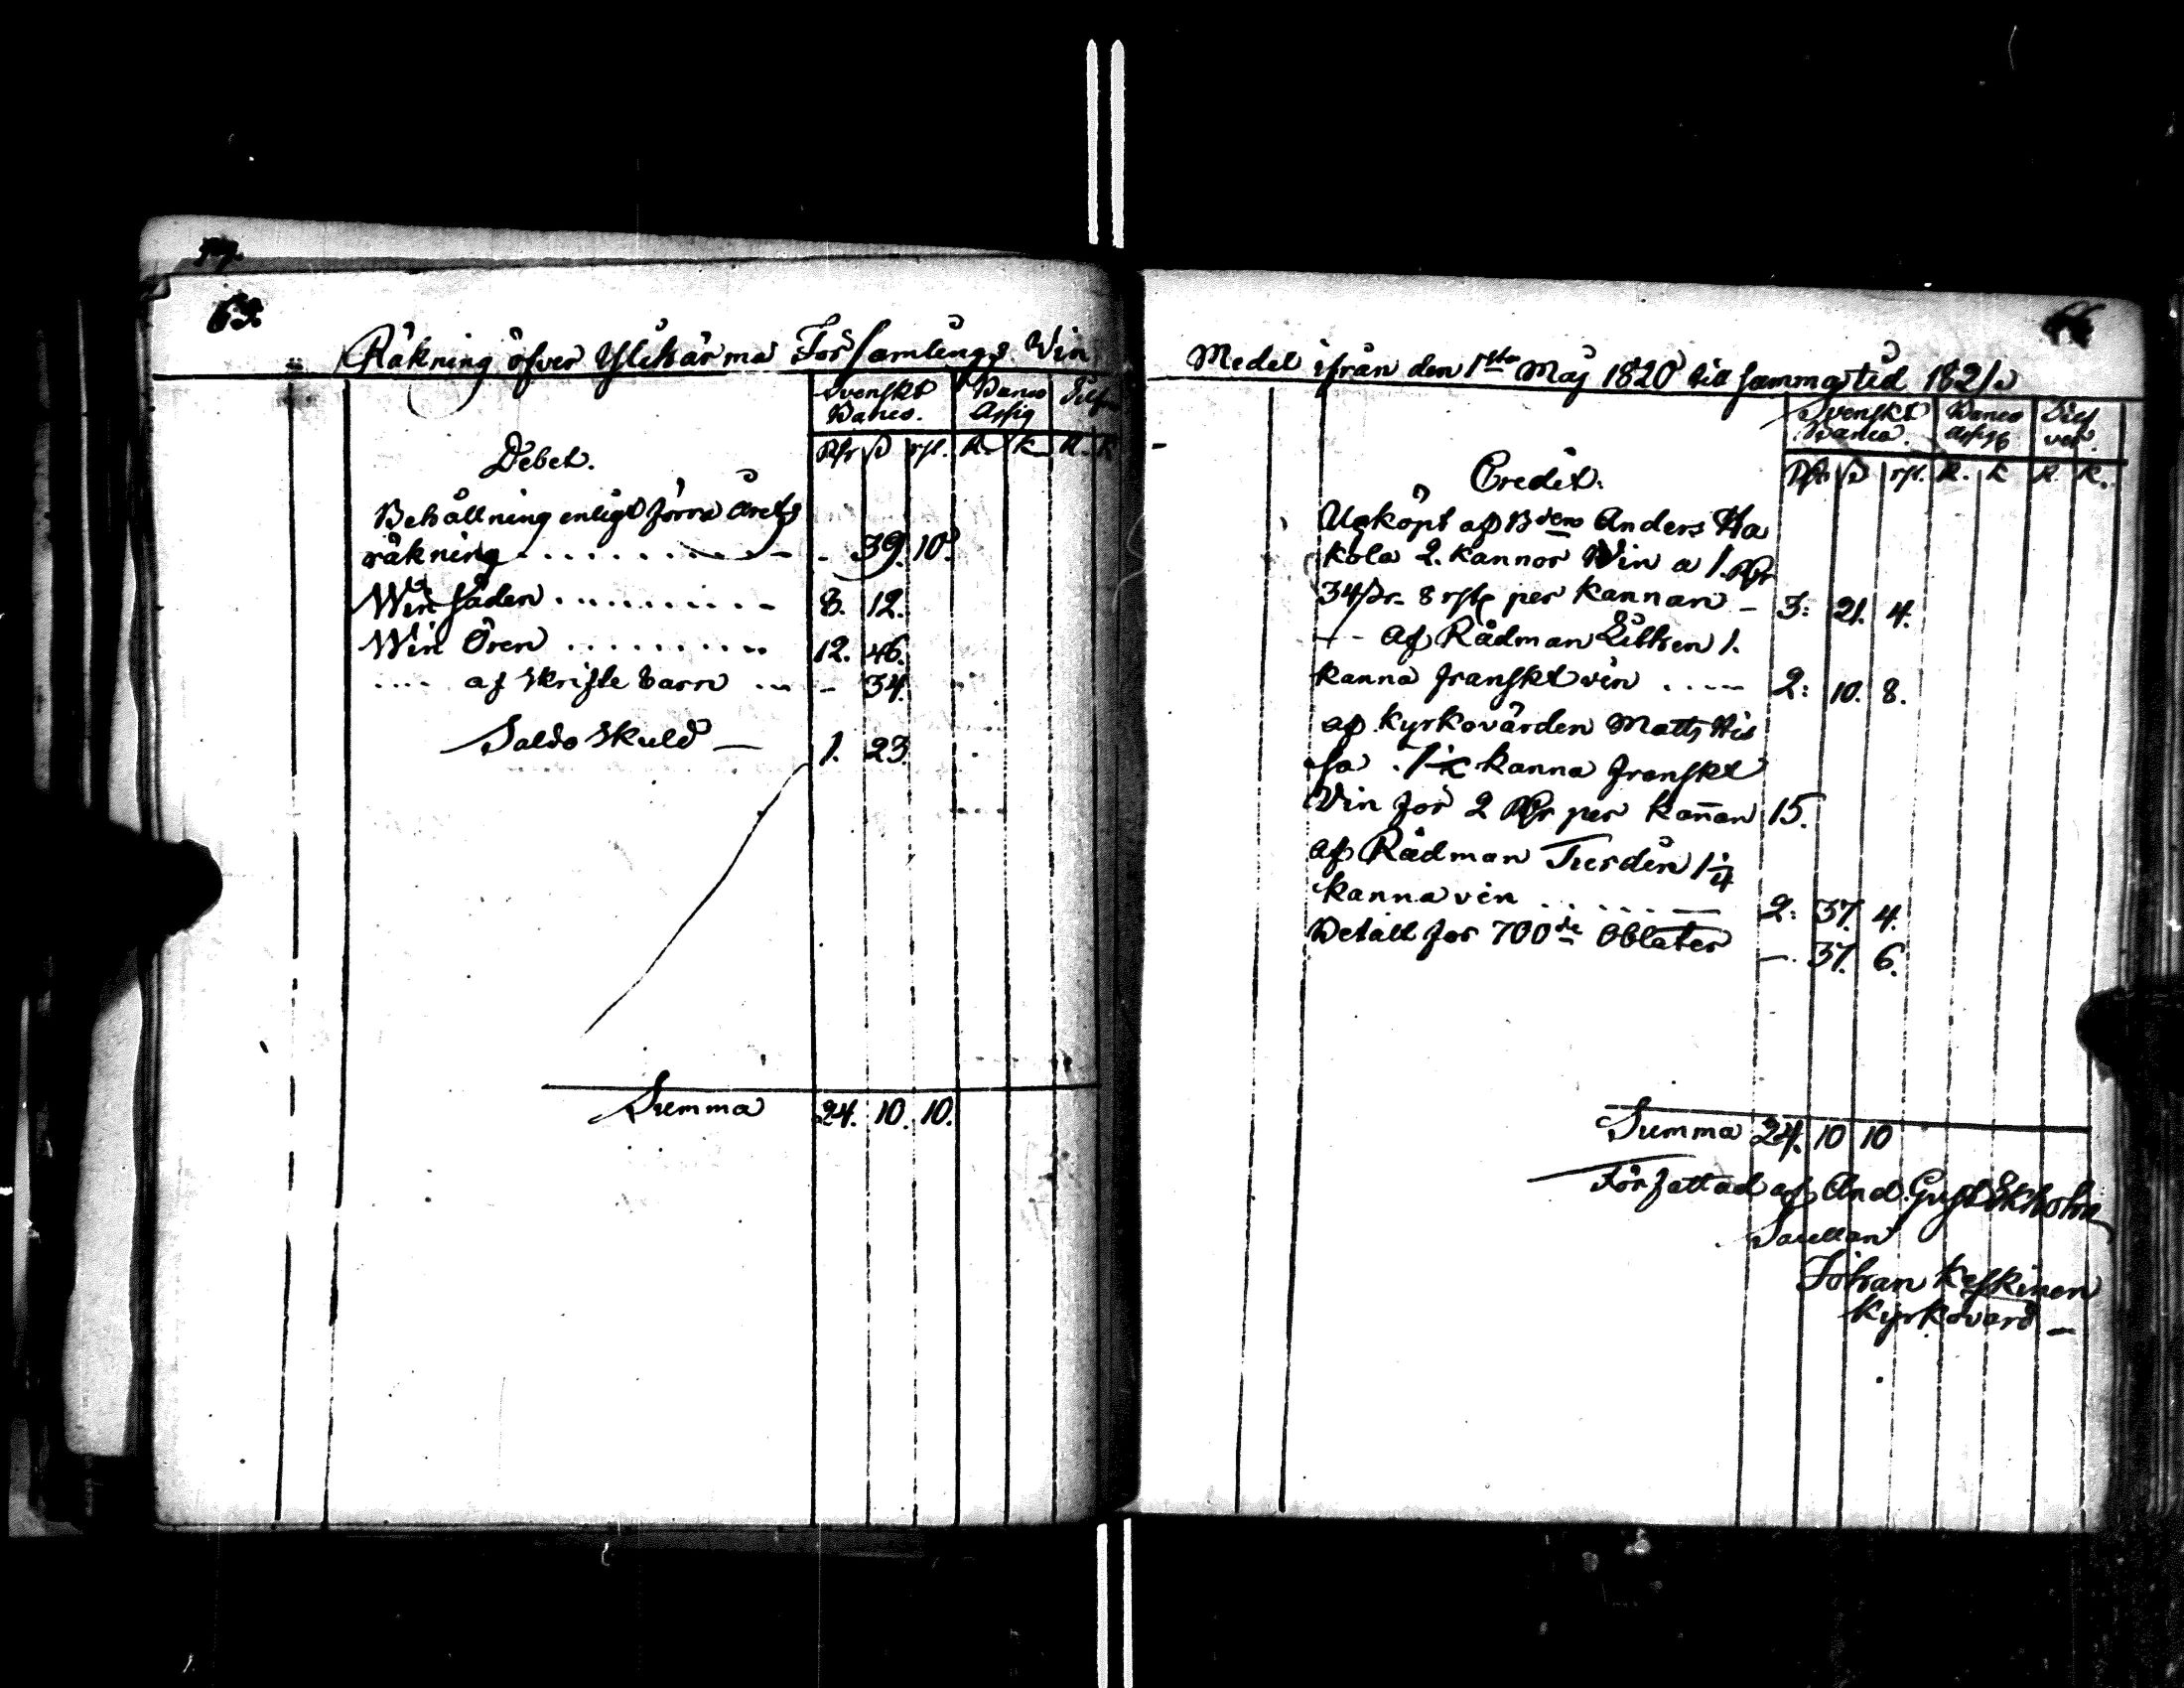 65.
Räkning öfver Ylihärmä Församlings Win
Svenskt Banco. Banco Assig Silfver
Debet. Rdr ß rst. R. K. R. K
Behållning enligt förra årets
räkning - . 39. 10.
Win säden 8. 12.
Win Ören 12. 46.
.... af Skrifte barn - 34.
Saldo Skuld — 1. 23.
Summa 24. 10. 10.
66
Medel ifrån den 1sta Maj 1820 till samma tid 1821.
Svenskt Banco. Banco Assig Silfver.
Credit. Rdr ß rst. R. K R K.
Upköpt af Bden Anders Ha
kola 2. kannor Win a 1. Rdr
34 ßr. 8 rst per kannan - 3: 21. 4.
-- af Rådman Lithen 1.
kanna franskt vin 2: 10. 8.
af kyrkovärden Matts His
sa 7½ kanna franskt
Vin för 2 Rdr per kannan 15.
af Rådman 1¼
kanna vin 2: 37. 4.
Betalt för 700de Oblater —. 37. 6.
Summa 24. 10 10
Författad af And. Gust Ekholm
Sacellan
Johan Keskinen
Kyrkovärd